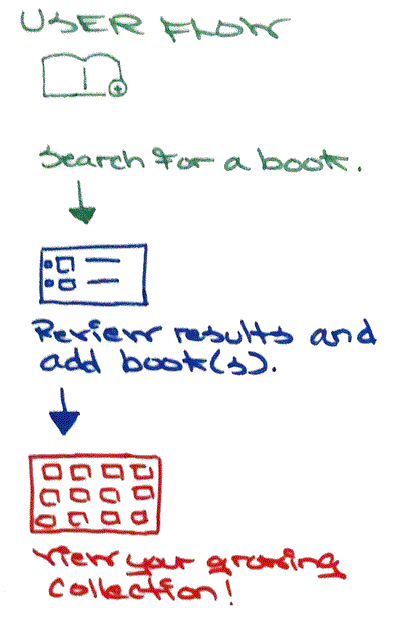 USER FLOW
Search for a book.
Review results and
add book(s).
View your growing
collection!